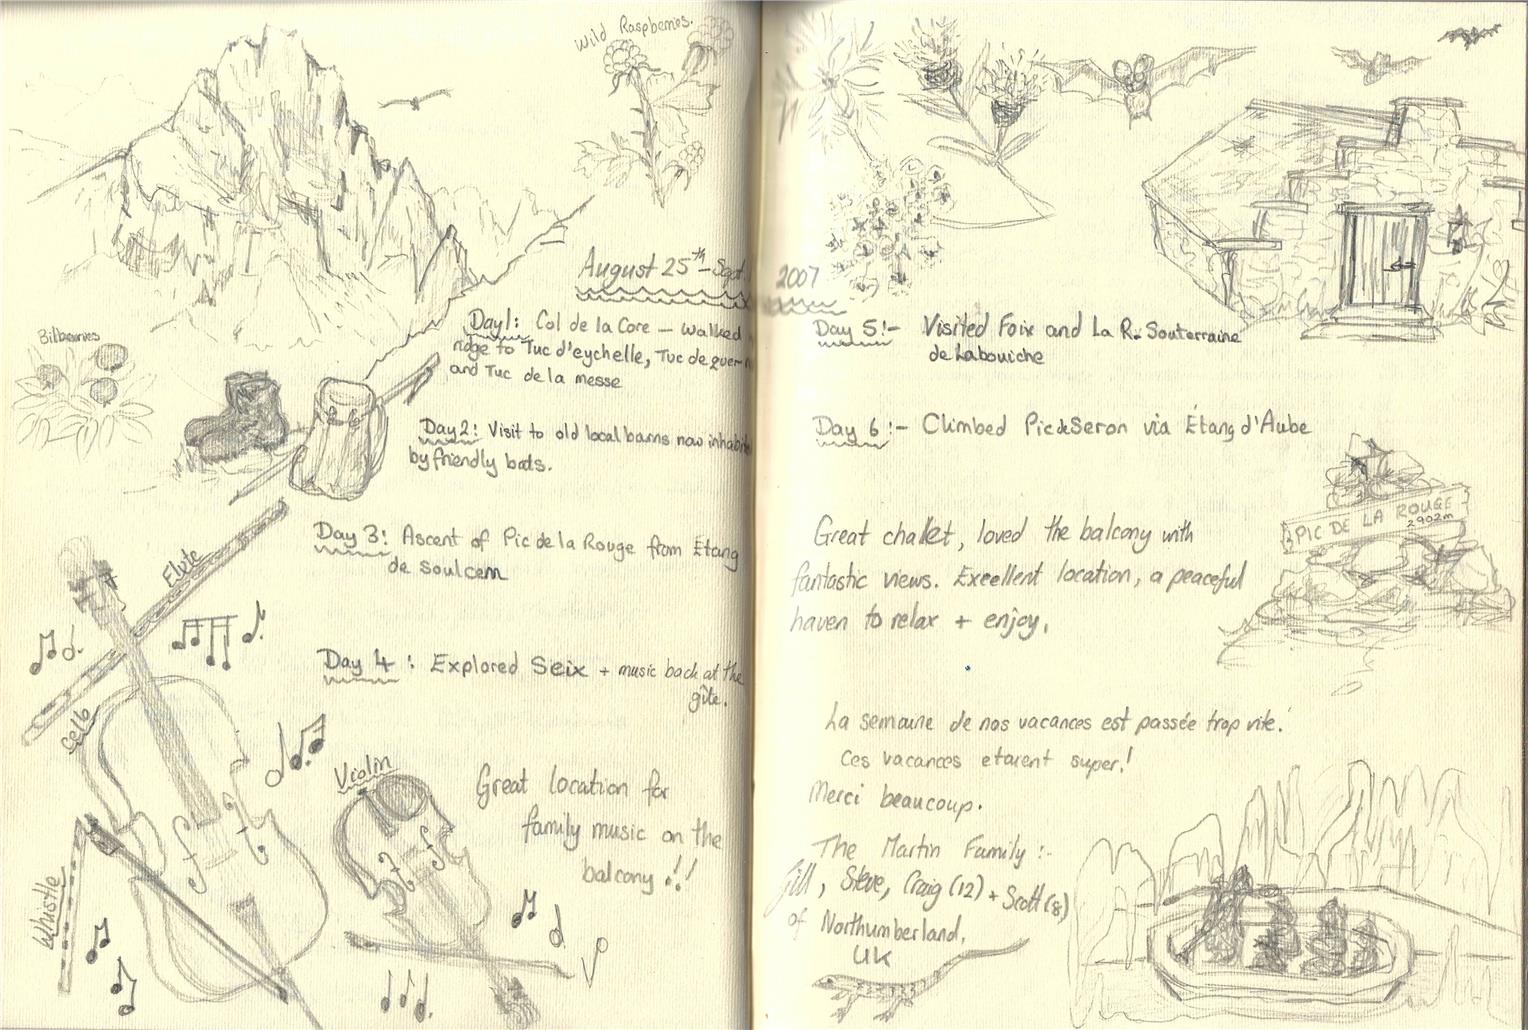 Wild Raspberries.
August 25th - Sept.
Bilberries
Day 1: Col de la Core - Walked
ridge to Tuc d'eychelle, Tuc de
and Tuc de la messe
Day 2: Visit to old local barns now
by friendly bats.
Day 3: Ascent of Pic de la Rouge from Étang
de Soulcem
Flute
Day 4: Explored Seix + music back at the
gîte.
Cello
Violin
Great location for
family music on the
balcony!!
Whistle
2007
Day 5:- Visited Foix and La R. Souterraine
de Labouiche
Day 6:- Climbed Pic de Seron via Étang d'Aube
PIC DE LA ROUGE
2902m
Great challet, loved the balcony with
fantastic views. Excellent location, a peaceful
haven to relax + enjoy.
La semaine de nos vacances est passée trop vite.
Ces vacances etaient super!
Merci beaucoup.
The Martin Family:-
Gill, Steve, Craig (12) + Scott (8)
of Northumberland,
UK